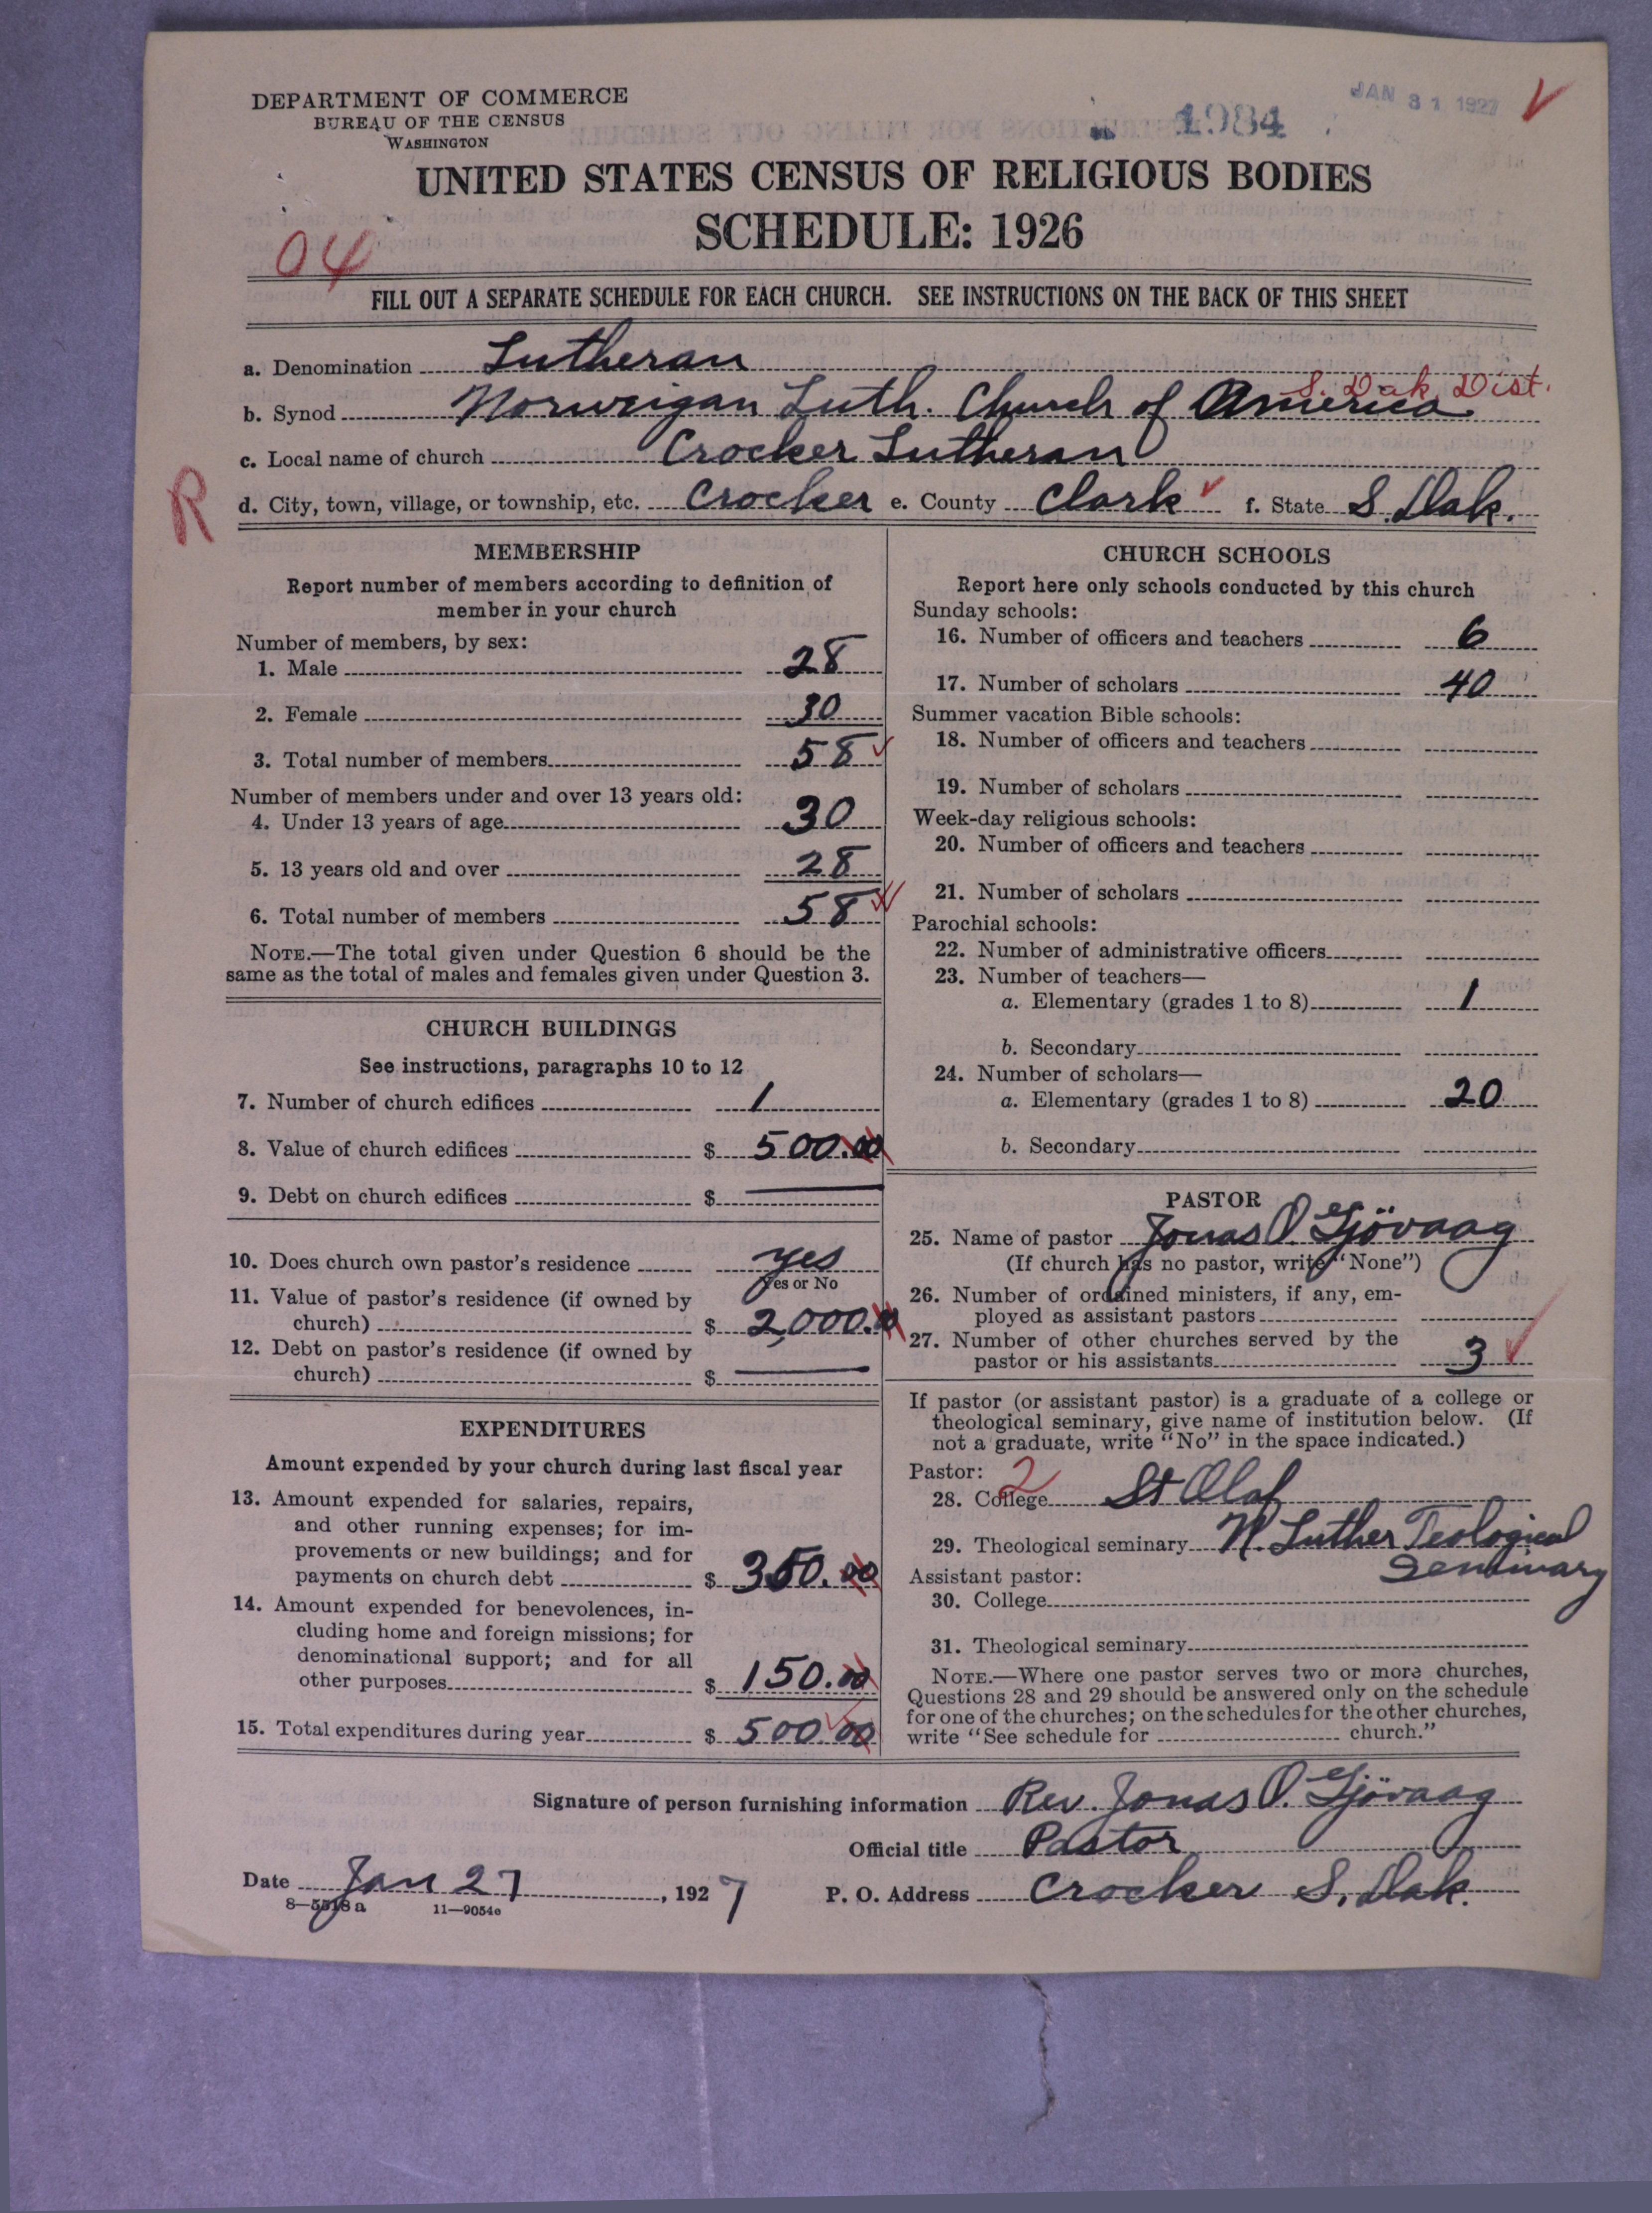 DEPARTMENT OF COMMERCE
BUREAU OF THE CENSUS
WASHINGTON
1984
JAN 31 1927
UNITED STATES CENSUS OF RELIGIOUS BODIES
SCHEDULE: 1926
04
FILL OUT A SEPARATE SCHEDULE FOR EACH CHURCH. SEE INSTRUCTIONS ON THE BACK OF THIS SHEET
a. Denomination Lutheran
S. Dak Dist.
b. Synod Norweigan Luth. Church of America
c. Local name of church Crocker Lutheran
R
d. City, town, village, or township, etc. Crocker e. County Clark f. State S. Dak.
MEMBERSHIP
Report number of members according to definition of
member in your church
Number of members, by sex:
1. Male 28
2. Female 30
3. Total number of members 58
Number of members under and over 13 years old:
4. Under 13 years of age 30
5. 13 years old and over 28
6. Total number of members 58
NOTE.—The total given under Question 6 should be the
same as the total of males and females given under Question 3.
CHURCH BUILDINGS
See instructions, paragraphs 10 to 12
7. Number of church edifices 1
8. Value of church edifices $ 500.00
9. Debt on church edifices $ —
10. Does church own pastor's residence yes
Yes or No
11. Value of pastor's residence (if owned by
church) $ 2,000.00
12. Debt on pastor's residence (if owned by
church) $ —
EXPENDITURES
Amount expended by your church during last fiscal year
13. Amount expended for salaries, repairs,
and other running expenses; for im-
provements or new buildings; and for
payments on church debt $ 350.00
14. Amount expended for benevolences, in-
cluding home and foreign missions; for
denominational support; and for all
other purposes $ 150.00
15. Total expenditures during year $ 500.00
CHURCH SCHOOLS
Report here only schools conducted by this church
Sunday schools:
16. Number of officers and teachers 6
17. Number of scholars 40
Summer vacation Bible schools:
18. Number of officers and teachers
19. Number of scholars
Week-day religious schools:
20. Number of officers and teachers
21. Number of scholars
Parochial schools:
22. Number of administrative officers
23. Number of teachers—
a. Elementary (grades 1 to 8) 1
b. Secondary
24. Number of scholars—
a. Elementary (grades 1 to 8) 20
b. Secondary
PASTOR
25. Name of pastor Jonas O. Gjövaag
(If church has no pastor, write "None")
26. Number of ordained ministers, if any, em-
ployed as assistant pastors
27. Number of other churches served by the
pastor or his assistants 3
If pastor (or assistant pastor) is a graduate of a college or
theological seminary, give name of institution below. (If
not a graduate, write "No" in the space indicated.)
Pastor: 2
28. College St Olaf
29. Theological seminary N. Luther Teological
Seminary
Assistant pastor:
30. College
31. Theological seminary
NOTE.—Where one pastor serves two or more churches,
Questions 28 and 29 should be answered only on the schedule
for one of the churches; on the schedules for the other churches,
write "See schedule for church."
Signature of person furnishing information Rev. Jonas O. Gjövaag
Official title Pastor
Date Jan 27, 1927
P. O. Address Crocker S. Dak.
8—5518a 11—9054a